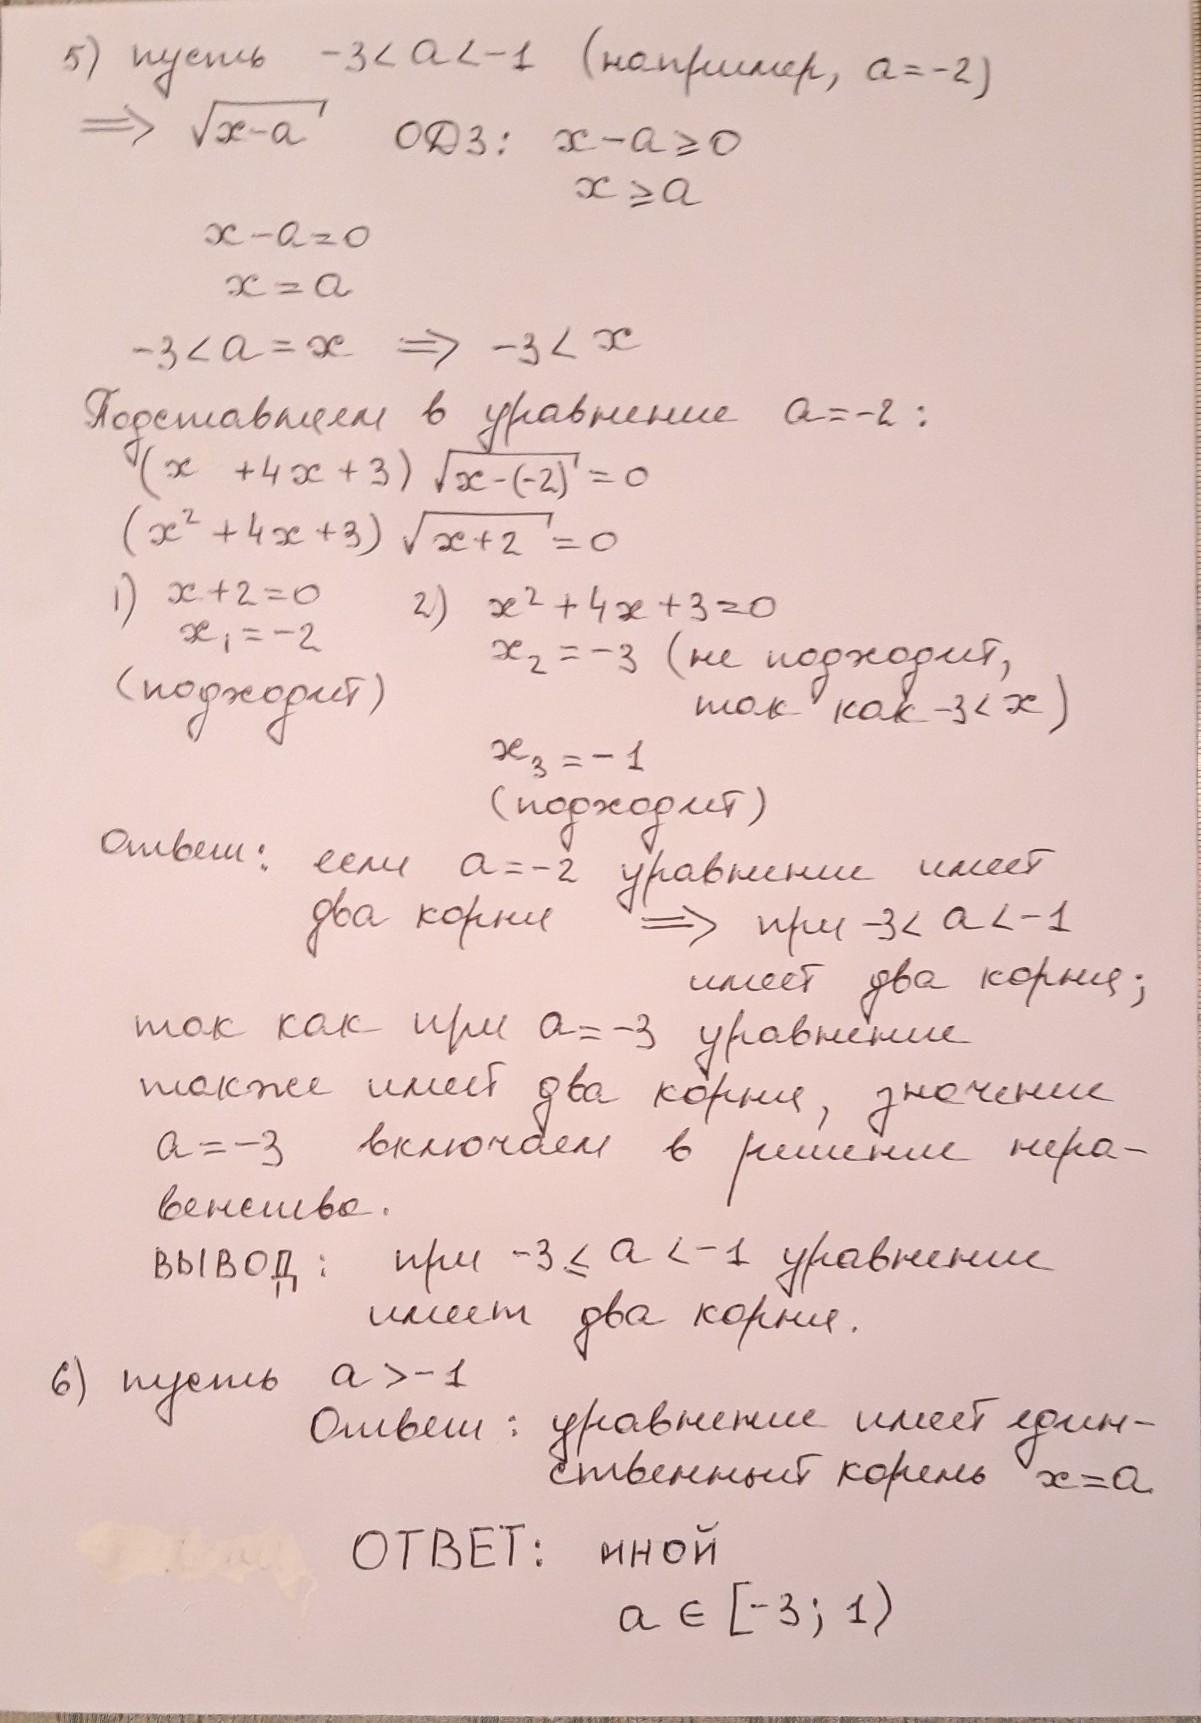 5) пусть -3 < a < -1 (например, a = -2)
⟹ √(x-a) ОДЗ: x - a ⩾ 0
x ⩾ a
x - a = 0
x = a
-3 < a = x ⟹ -3 < x
Подставляем в уравнение a = -2:
(x + 4x + 3) √(x-(-2)) = 0
(x² + 4x + 3) √(x+2) = 0
1) x + 2 = 0 2) x² + 4x + 3 = 0
x₁ = -2 x₂ = -3 (не подходит,
(подходит) так как -3 < x)
x₃ = -1
(подходит)
Ответ: если a = -2 уравнение имеет
два корня ⟹ при -3 < a < -1
имеет два корня;
так как при a = -3 уравнение
также имеет два корня, значение
a = -3 включаем в решение нера-
венства.
ВЫВОД: при -3 ≤ a < -1 уравнение
имеет два корня.
6) пусть a > -1
Ответ: уравнение имеет един-
ственный корень x = a
ОТВЕТ: иной
a ∈ [-3; 1)